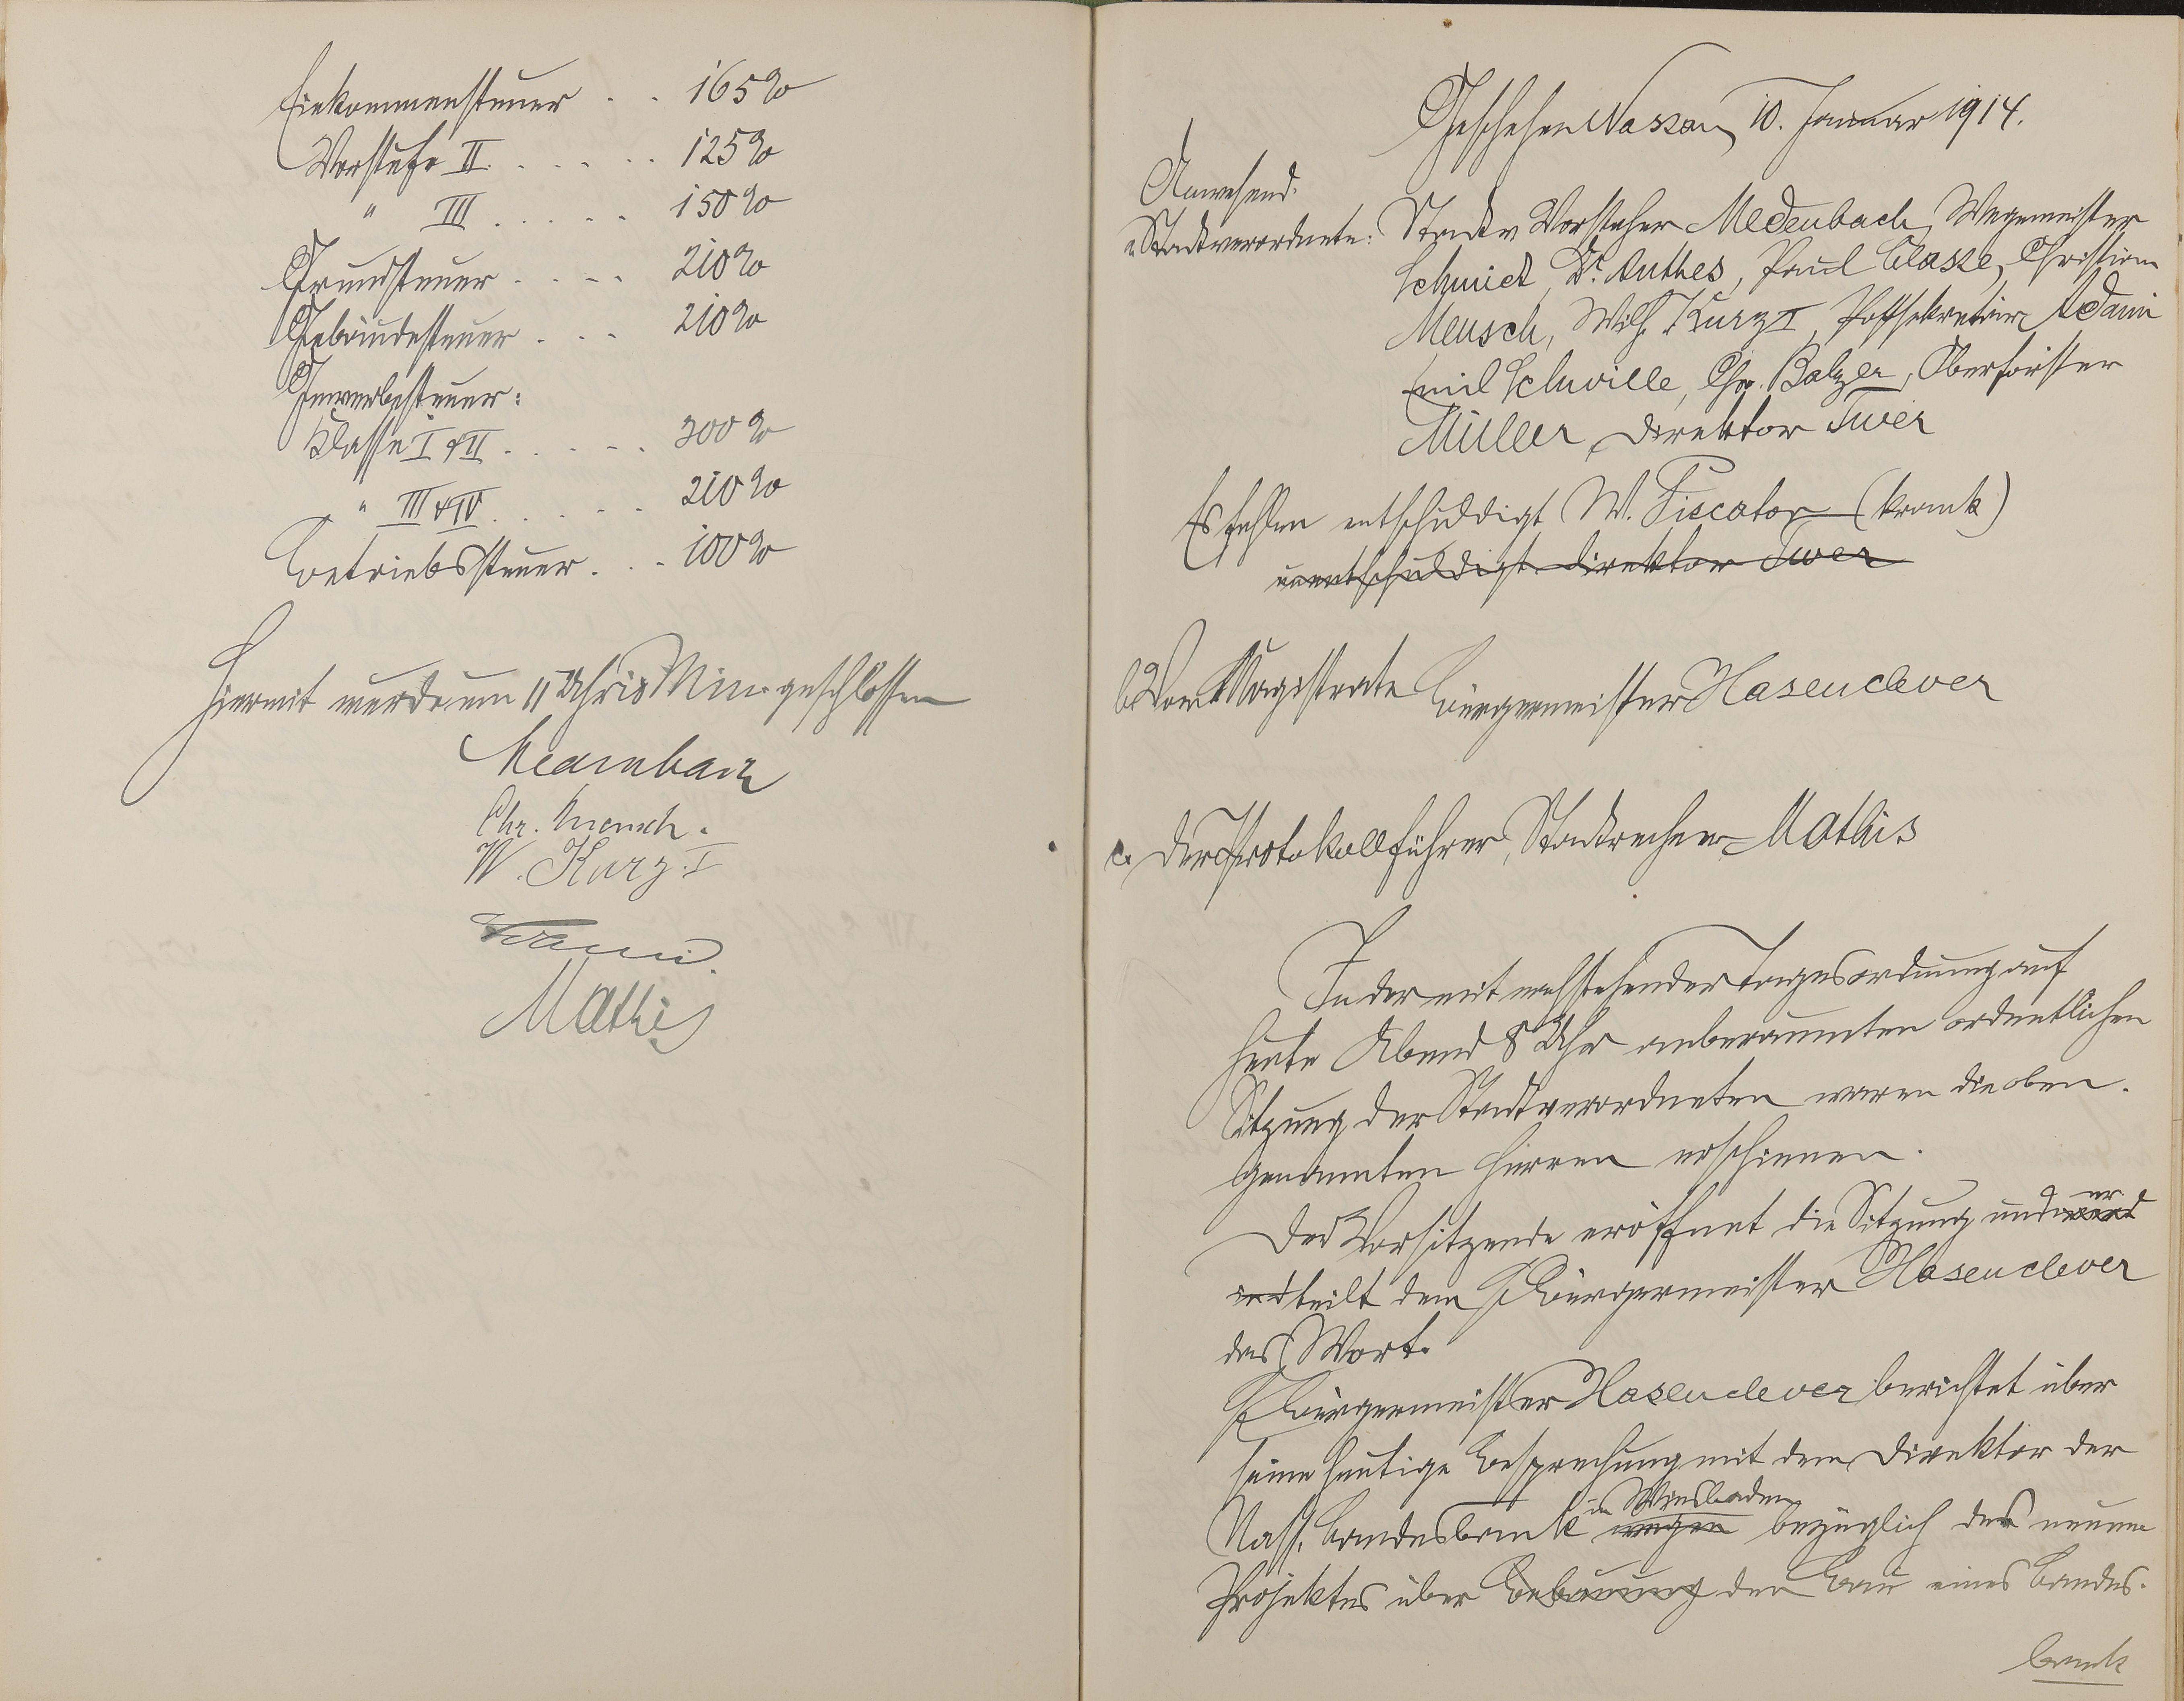 Einkommensteuer . . 165%
Vorstufe II . . . . . . 125%
" III . . . . . 150%
Grundsteuer . . . . 210%
Gebäudesteuer . . . 210%
Gewerbesteuer:
Klasse I & II . . . . . 300%
" III & IV . . . . . 210%
Betriebssteuer . . . 100%
Hiermit wurde um 11 Uhr 15 Min. geschlossen
Medenbach
Chr. Mensch.
W. Kurz. I
Adami.
Mathis
Geschehen Nassau, 10. Januar 1914.
Anwesend.
a. Stadtverordnete: Stadtv. Vorsteher Medenbach, Wegemeister
Schmidt, Dr. Anthes, Paul Classe, Christian
Mensch, Wilh. Kurz I, Postsekretär Adami
Emil Schwille, Chr. Balzer, Oberförster
Müller, Direktor Twer
Es fehlen entschuldigt W. Piscator (krank)
unentschuldigt Direktor Twer
b. Vom Magistrate Bürgermeister Hasenclever
c. Der Protokollführer, Stadtrechner Mathis
In der mit nachstehender Tagesordnung auf
heute Abend 8 Uhr anberaumten ordentlichen
Sitzung der Stadtverordneten waren die oben-
genannten Herren erschienen.
Der Vorsitzende eröffnet die Sitzung und er
teilt dem H. Bürgermeister Hasenclever
das Wort.
H. Bürgermeister Hasenclever berichtet über
seine heutige Besprechung mit dem Direktor der
Nass. Landesbank in Wiesbaden wegen bezüglich des neuen
Projektes über Bebauung den Bau eines Landes-
bank